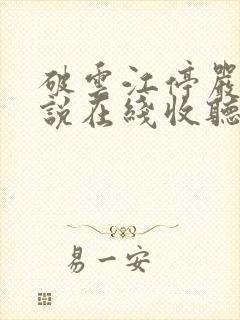 破雲江停嚴
說在綫收聽
易一安